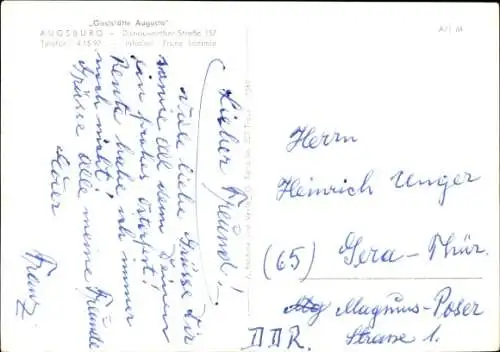 „Gaststätte Augusta"
AUGSBURG - Donauwörther-Straße 157
Telefon: - Inhaber: Franz
A/1
Lieber Freund!
Viele liebe Grüsse Dir
sowie all den Deinen
ein frohes Osterfest!
Rente habe ich immer
noch nicht!
Grüsse alle meine Freunde
Franz
Herrn
Heinrich Unger
(65) Gera-Thür.
Magnus-Poser
Strasse 1.
DDR.